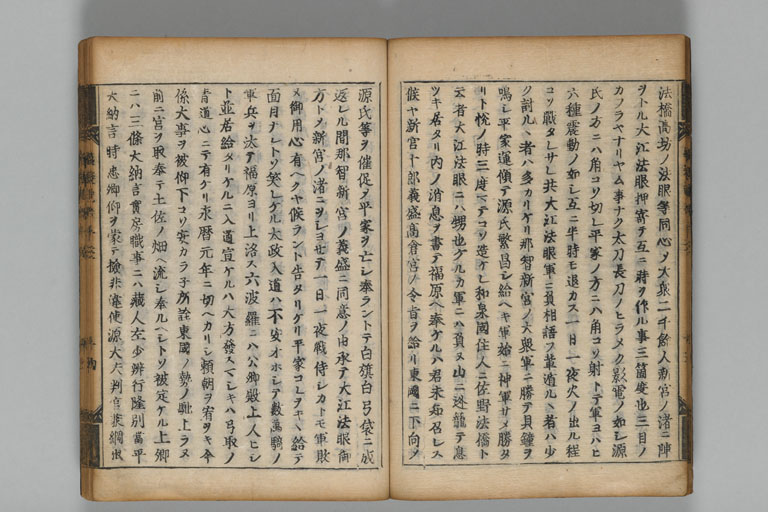 法橋高坊ノ法眼等同心ノ大衆二千餘人新宮ノ渚ニ陣
ヲトル大江法眼押寄テ互ニ時ヲ作ル事三箇度也三目ノ
カフラヤナリヤム事ナク太刀長刀ノヒラメク影電ノ如シ源
氏ノ方ニハ角コソ切レ平家ノ方ニハ角コソ射トテ軍ヨハヒ
六種震動ノ如シ互ニ半時モ退カス一日一夜火ノ出ル程
コソ戰タレサレ共大江法眼軍ニ負相語フ輩遁ルヽ者ハ少
ク討ルヽ者ハ多カリケリ那智新宮ノ大衆軍ニ勝テ貝鐘ヲ
鳴シ平家運傾テ源氏繁昌シ給ヘキ軍始ニ神軍サメ勝タ
リト悦ノ時三度マテコソ造ケレ和泉國住人ニ佐野法橋ト
云者大江法眼ニハ甥也ケルカ軍ニハ負ヌ山ニ迯籠テ息
ツキ居タリ内ノ消息ヲ書テ福原ヘ奉ケルハ君未知召レス
候ヤ新宮十郎義盛高倉宮ノ令旨ヲ給リ東國ニ下向ノ
源氏等ヲ催促ノ平家ヲ亡シ奉ラントテ白旗白弓袋ニ成
返レル間那智新宮ノ義盛ニ同意ノ由承テ大江法眼御
方トメ新宮ノ渚ニヲシヨセテ一日一夜戰侍シカトモ軍敗
ヌ御用心有ヘクヤ候ラント告タリケリ平家コレヲキヽ給テ
面目ナシトソ笑レケル太政入道ハ不安オホシテ數萬騎ノ
軍兵ヲ太テ福原ヨリ上洛ス六波羅ニハ公卿殿上人ヒシ
ト並居給タリケルニ入道宣ケルハ大方發スマシキハ弓取ノ
青道心ニテ有ケリ永暦元年ニ切ヘカリシ頼朝ヲ宥ヲキ今
係大事ヲ被仰下コソ安カラ子所詮東國ノ勢ノ馳上ラヌ
前ニ宮ヲ取奉テ土佐ノ畑ヘ流シ奉ルヘシトソ被定ケル上卿
ニハ三條大納言實房職事ニハ藏人左少辨行隆別當平
大納言時忠卿仰ヲ蒙テ撿非違使源大夫判官兼綱出